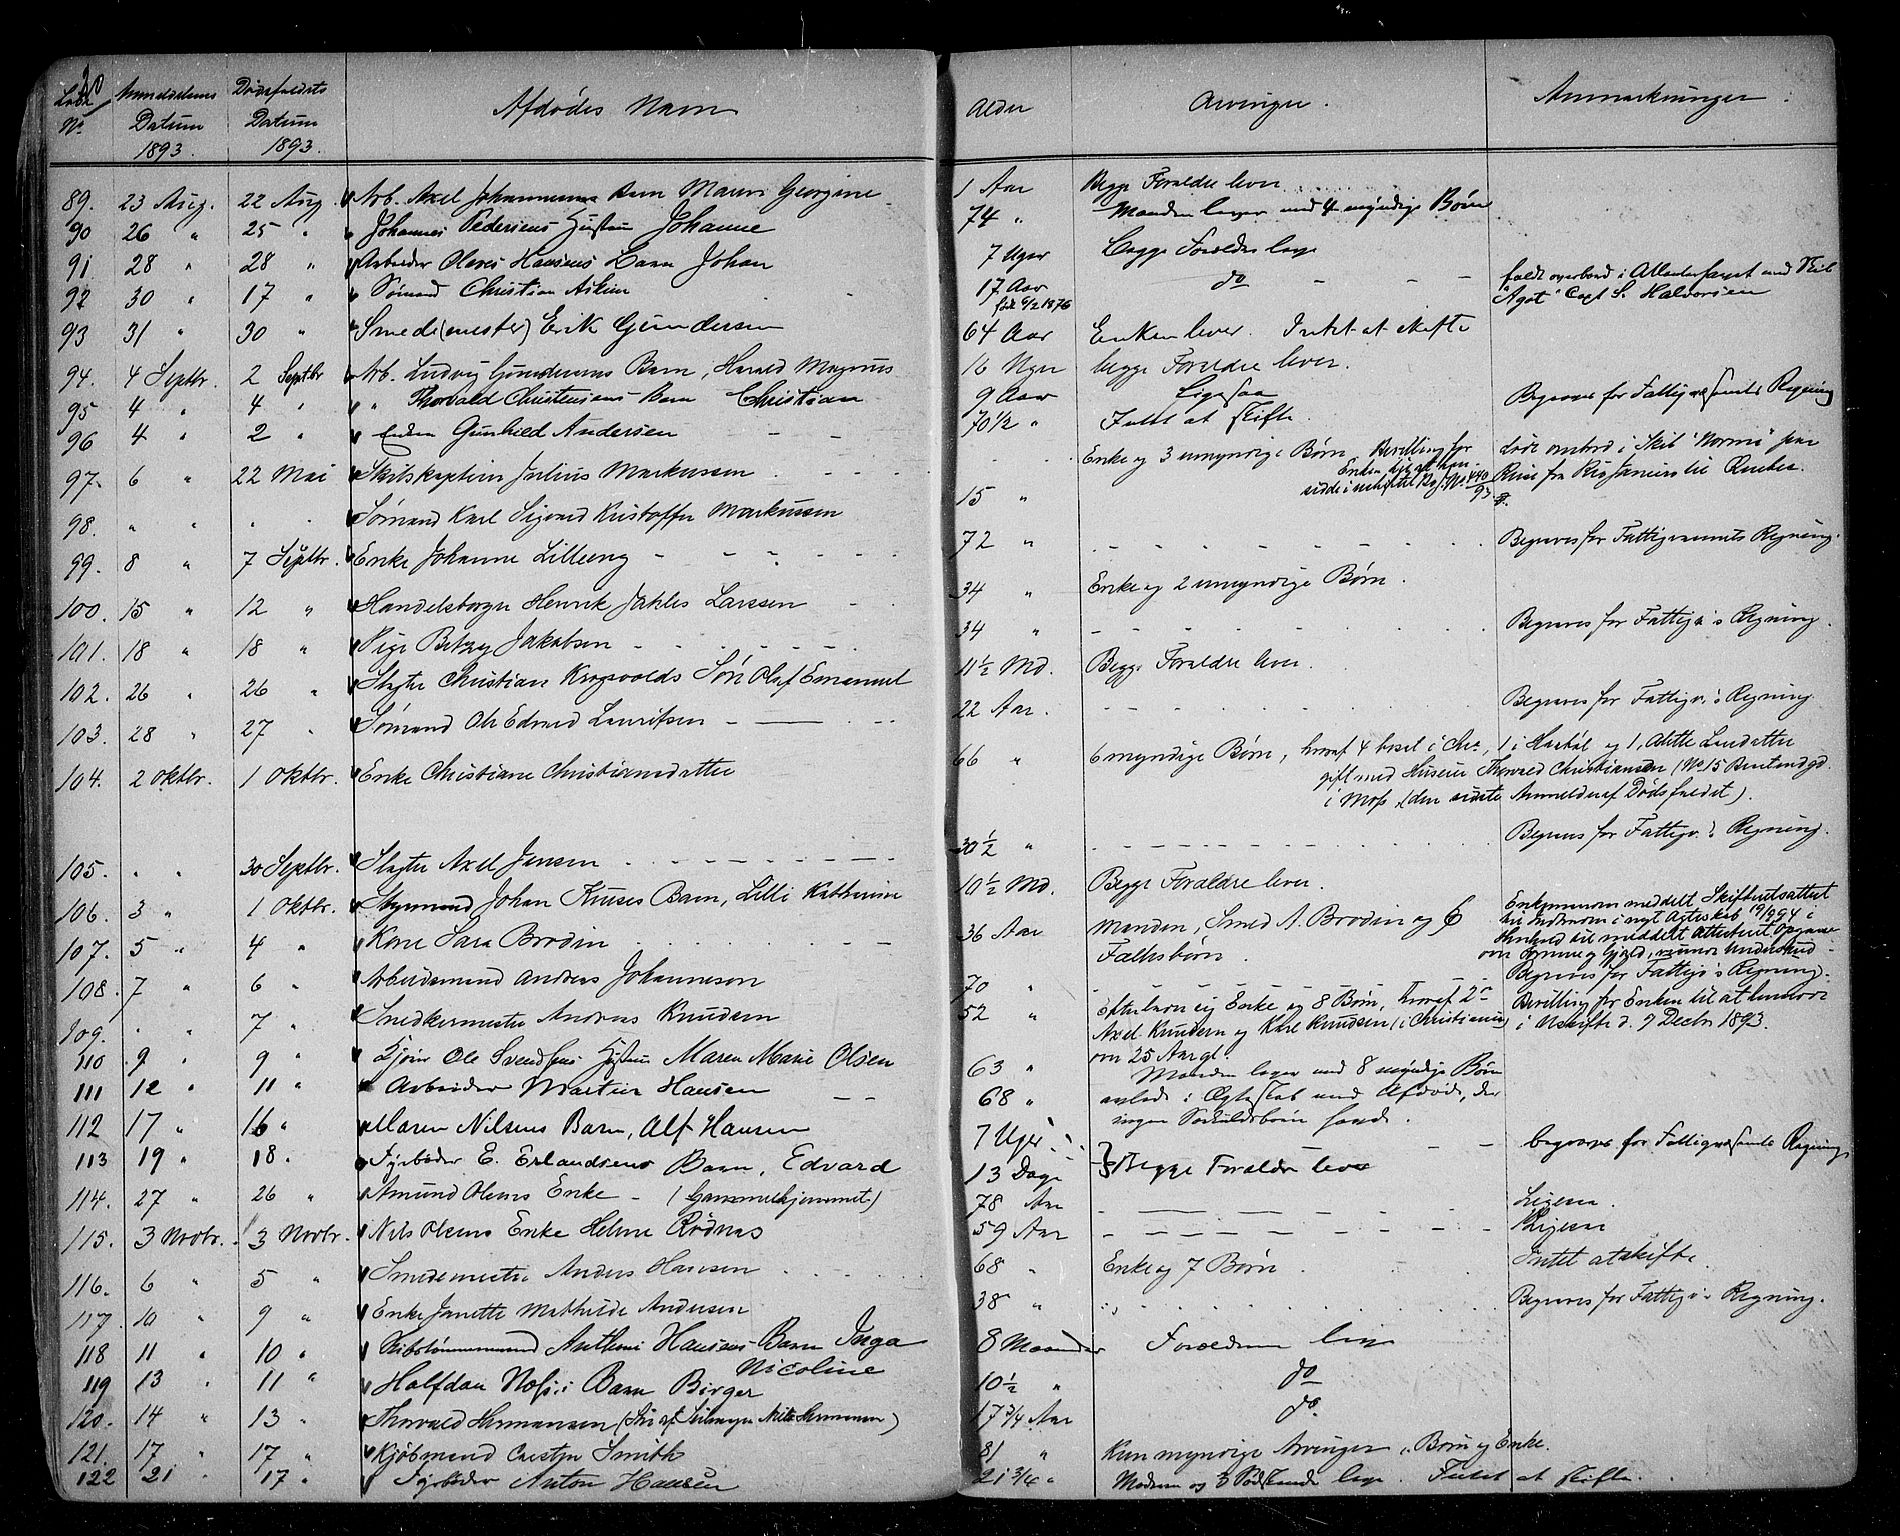 Løbe No Anmeldelsens Datum 1893. Dødsfaldets Datum 1893. Afdødes Navn Alder Arvinger. Anmærkninger.
89. 23 Aug. 22 Aug. Arb. Axel Johannesens Barn Maurs Georgine 1 Aar Begge Forældre lever
90 26 " 25 " Johannes Pedersens Hustru Johanne 74 " Manden lever med 4 myndige Børn
91 28 " 28 " Arbeider Olaves Hansens Barn Johan 7 Uger Begge Forældre leve
92 30 " 17 " Sømand Christian Askim 17 Aar do faldt overbord i Atlanterhavet med Skib
født 6/2 1876 "Agot" Capt S. Halvorsen
93 31 " 30 " Smed (mester) Erik Gundersen 64 Aar Enken lever. Intet at skifte
94. 4 Septbr. 2 Septbr Arb. Ludvig Gundersens Barn, Harald Magnus 16 Uger begge Forældre lever.
95 4 " 4 " " Thorvald Christensens Barn Christian 9 Aar Ligesaa Begraves for Fattigvæsenets Regning
96 4 " 2 " Enken Gunhild Andersen 70 1/2 " Intet at skifte.
97. 6 " 22 Mai Skibskaptein Julius Markussen Enke og 3 umyndige Børn Bevilling for døde ombord i Skib "Norma" paa
Enken til at hen- Reise fra Kristiania til Quebec.
sidde i uskiftet Bo J. No 440/93
98. " " Sømand Karl Sigvard Kristoffer Markussen 15 "
99. 8 " 7 Septbr. Enke Johanne Lilleeng 72 " Begraves for Fattigvæsenets Regning.
100. 15 " 12 " Handelsborger Henrik Jahles Larssen 34 " Enke og 2 umyndige Børn.
101. 18 " 18 " Pige Betzy Jakobsen 34 " Begraves for Fattigv.s Regning.
102. 26 " 26 " Slagter Christian Krogsvolds Søn Olaf Emanuel 11 1/2 Md. Begge Forældre lever.
103. 28 " 27 " Sømand Ole Edvard Lauritsen 22 Aar. Begraves for Fattigv.s Regning.
104. 2 Oktbr. 1 Oktbr. Enke Christiane Christiansdatter 66 " 6 myndige Børn, hvoraf 4 bosat i Chr., 1 i og 1,
gift med Huseier Thorvald Christiansen (No 15
i Moss (den sidste Anmelder af Dødsfaldet).
105. " " 30 Septbr. Slagter Axel Jensen 30 1/2 " Begraves for Fattigv.s Regning.
106. 3 " 1 Oktbr. Styrmand Johan Kruses Barn, Lilli Kathrine 10 1/2 Md. Begge Forældre lever.
107. 5 " 4 " Kone Sara Brodin 36 Aar Manden, Smed A. Brodin og 6 Enkemanden meddelt Skifteretsattest
Fællesbørn. til Indtræden i nyt Ægteskab 19/9 94 i
Henhold til meddelt Attesteret Opgave
over Formue og Gjæld,
108. 7 " 6 " Arbeidsmand Anders Johannesen 70 " Begraves for Fattigv.s Regning.
109. " " 7 " Snedkermester Andreas Knudsen 52 " Efterlevn eig Enke og 8 Børn, hvoraf 2 Bevilling for Enken til at hensidde
Axel Knudsen og Karl Knudsen (i Christiania) i Uskifte d. 7 Decbr 1893.
over 25 Aar gl.
110 9 " 9 " Ole Svendsens Hustru Maren Marie Olsen 63 " Manden lever med 8 myndige Børn
111 12 " 11 " Arbeider Martin Hansen 68 " avlede i Ægteskab med Afdøde, der
ingen Særkuldsbørn havde.
112 17 " 16 " Maren Nilsens Barn, Alf Hansen 7 Uger begraves for Fattigvæsenets Regning
113 19 " 18. Fyrbøder E. Erlandsens Barn, Edvard 13 Dage } Begge Forældre lever
114. 27 " 26 " Amund Olsens Enke - (Gammelhjemmet) 78 Aar Ligesaa
115. 3 Novbr. 3 Novbr. Nils Olsens Enke Helene Rødnæs 59 Aar Ligesaa
116. 6 " 5 " Smedemester Anders Hansen 68 " Enke og 7 Børn. Intet at skifte.
117. 10 " 9 " Enke Janette Mathilde Andersen 38 " Begraves for Fattigv.s Regning.
118 11 " 10 " Skibstømmermand Anthoni Hansens Barn Inga 8 Maaneder Forældrene leve
Nicoline
119 13 " 11 " Halfdan Moss's Barn Birger 10 1/2 " do
120. 14 " 13 " Thorvald Hermansen (Søn af Seilmager Nils Hermansen) 17 3/4 Aar do.
121. 17 " 17 " Kjøbmand Carsten Smith 81 " Kun myndige Arvinger, Børn og Enke.
122 21 " 17 " Fyrbøder Anton Hansen 21 3/4 " Modren og 3 Sødskende leve. Intet at skifte.